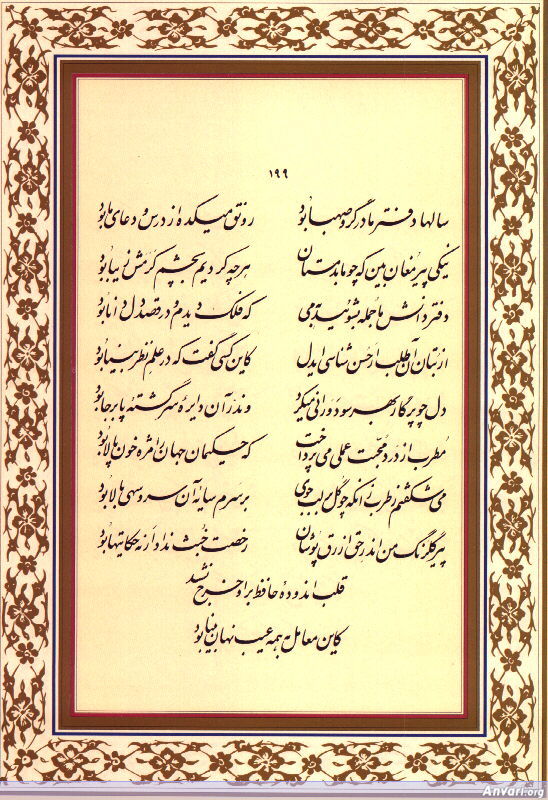 ۱۹۹
سالها دفتر ما در گرو صهبا بود رونق میکده از درس و دعای ما بود
نیکی پیر مغان بین که چو ما بدمستان هر چه کردیم بچشم کرمش زیبا بود
دفتر دانش ما جمله بشوئید بمی که فلک دیدم و در قصد دل دانا بود
از بتان آن طلب ار حسن شناسی ایدل کاین کسی گفت که در علم نظر بینا بود
دل چو پرگار بهر سو دورانی میکرد وندر آن دایره سرگشته پابرجا بود
مطرب از درد محبت عملی می پرداخت که حکیمان جهان را مژه خون پالا بود
می شکفتم ز طرب زانکه چو گل بر لب جوی بر سرم سایه آن سرو سهی بالا بود
پیر گلرنگ من اندر حق ازرق پوشان رخصت خبث نداد ار نه حکایتها بود
قلب اندوده حافظ بر او خرج نشد
کاین معامل بهمه عیب نهان بینا بود
Anvari.org